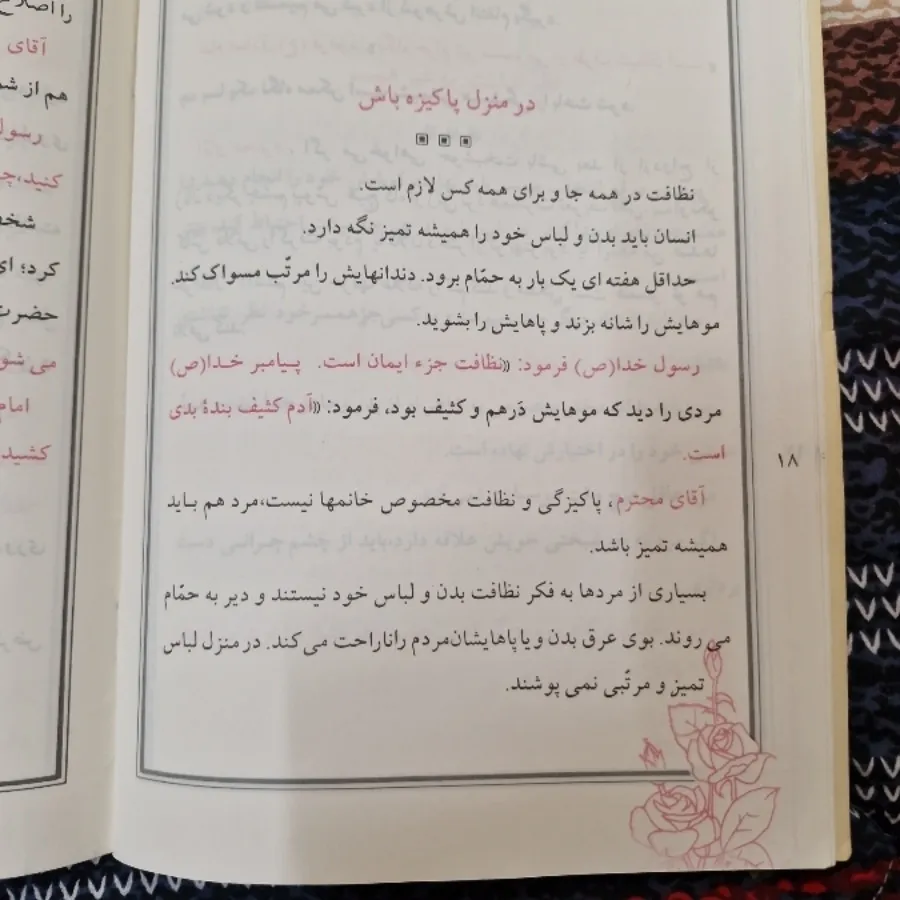 در منزل پاکیزه باش
نظافت در همه جا و برای همه کس لازم است.
انسان باید بدن و لباس خود را همیشه تمیز نگه دارد.
حداقل هفته ای یک بار به حمّام برود. دندانهایش را مرتّب مسواک کند.
موهایش را شانه بزند و پاهایش را بشوید.
رسول خدا(ص) فرمود: «نظافت جزء ایمان است. پیامبر خدا(ص)
مردی را دید که موهایش دَرهم و کثیف بود، فرمود: «آدم کثیف بندهٔ بدی
است.
۱۸
آقای محترم، پاکیزگی و نظافت مخصوص خانمها نیست،مرد هم باید
همیشه تمیز باشد.
بسیاری از مردها به فکر نظافت بدن و لباس خود نیستند و دیر به حمّام
می روند. بوی عرق بدن و یا پاهایشان مردم را ناراحت می کند. در منزل لباس
تمیز و مرتّبی نمی پوشند.
را اصلاح
آقای
هم از شم
رسول
کنید،چ
شخص
کرد؛ ای
حضرت
می شو
امام
کشید